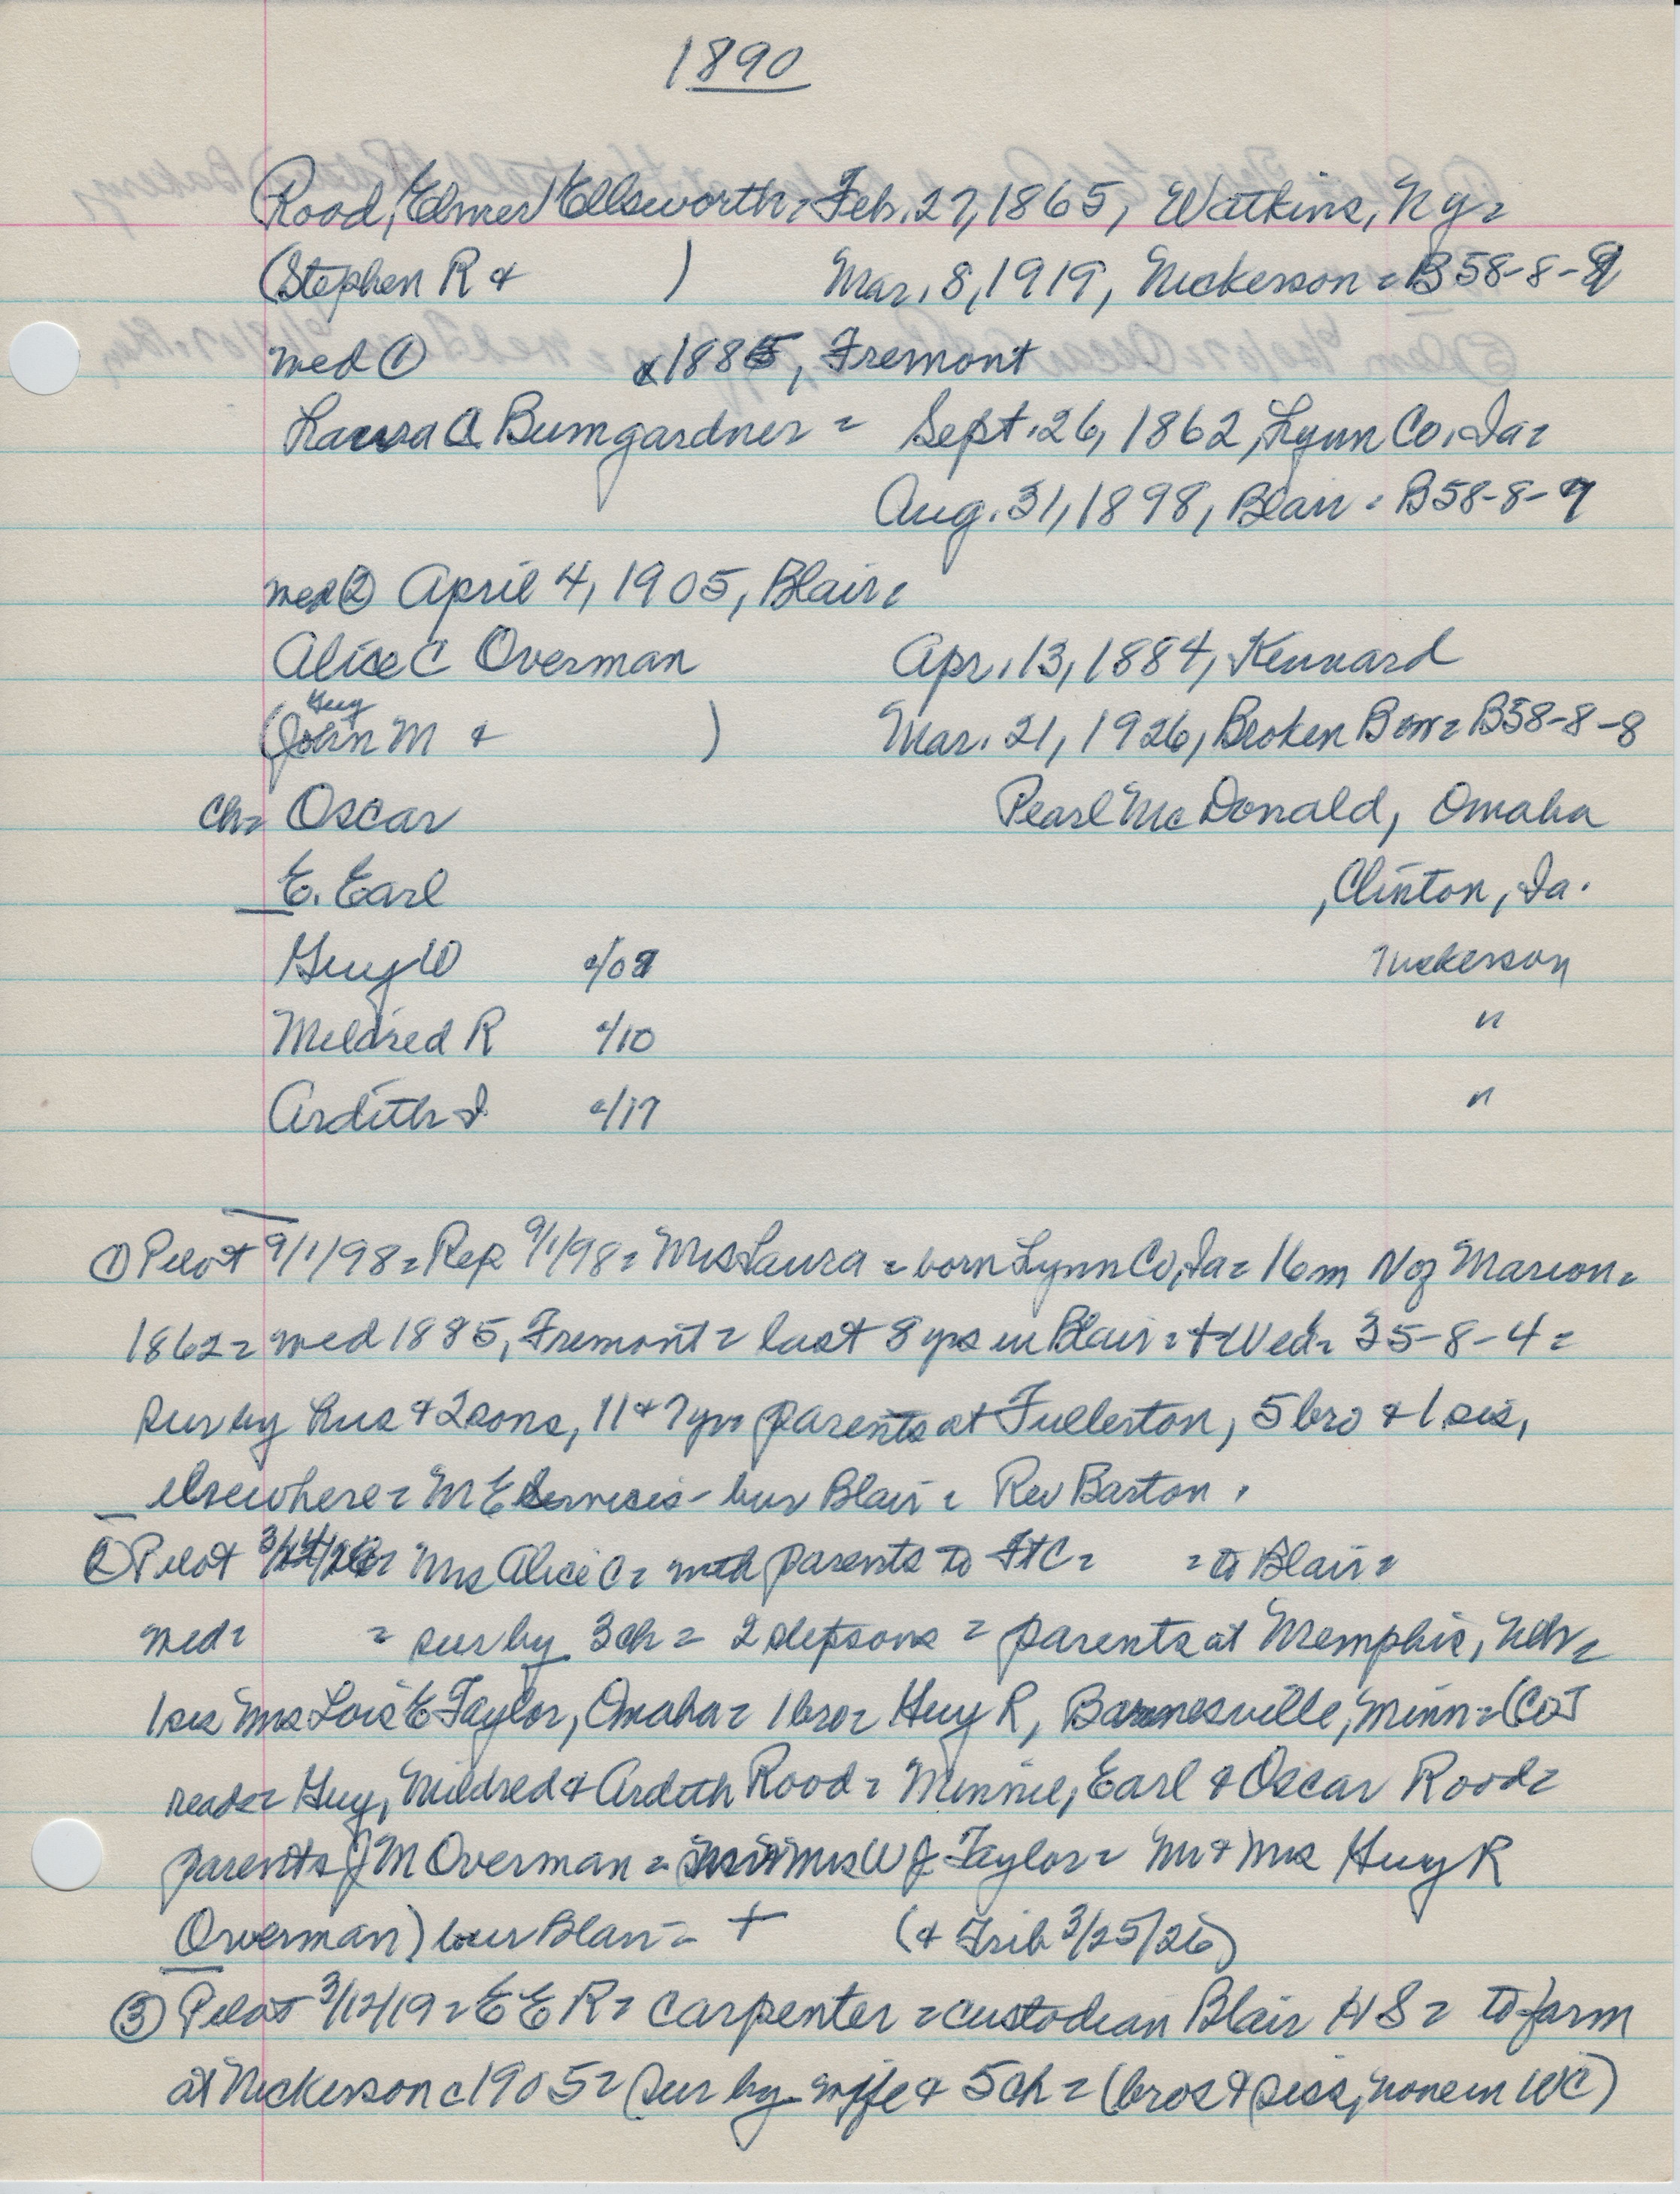 1890
Rood, Elmer Ellsworth = Feb. 27, 1865, Watkins, Ny =
(Stephen R & ) Mar. 8, 1919, Nickerson = B58-8-9
med ① 1885, Fremont
Laura A Bumgardner = Sept. 26, 1862, Lynn Co, Ia =
Aug. 31, 1898, Blair = B58-8-9
med ② April 4, 1905, Blair =
Alice C Overman Apr. 13, 1884, Kennard
Guy
(John M & ) Mar. 21, 1926, Broken Bow = B58-8-8
Ch = Oscar Pearl McDonald, Omaha
E. Earl , Clinton, Ia.
Guy W Nickerson
Mildred R c/10 "
Ardith I c/17 "
① Pilot 9/1/98 = Rep 9/1/98 = Mrs Laura = born Lynn Co, Ia = 16m N of Marion =
1862 = med 1885, Fremont = last 8 yrs in Blair = + Wed = 35-8-4 =
sur by hus & 2 sons, 11 & 7 yrs parents at Fullerton, 5 bro & 1 sis,
elsewhere = ME services - bur Blair = Rev Barton.
② Pilot Mrs Alice C = with parents to FtC = = to Blair =
med = = sur by 3 ch = 2 stepsons = parents at Memphis, Neb =
1 sis Mrs Lois E Taylor, Omaha = 1 bro = Guy R, Barnesville, Minn = (CoT
reads = Guy, Mildred & Ardith Rood = Minnie, Earl & Oscar Rood =
parents J M Overman = Mrs W J Taylor = Mr & Mrs Guy R
Overman) bur Blair = + (& Trib 3/25/26)
③ Pilot 3/12/19 = E E R = carpenter = custodian Blair HS = to farm
at Nickerson c1905 = sur by wife & 5 ch = (bros & siss, none in WC)